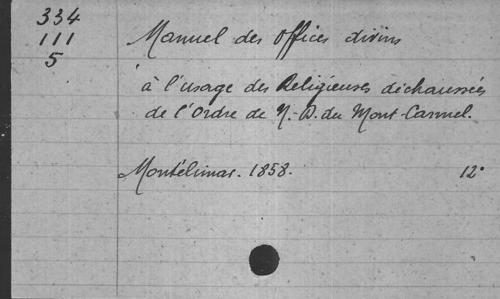 334
111
5
Manuel des offices divins
à l'usage des Religieuses déchaussées
de l'Ordre de N.-D. du Mont-Carmel.
Montélimar. 1858. 12°